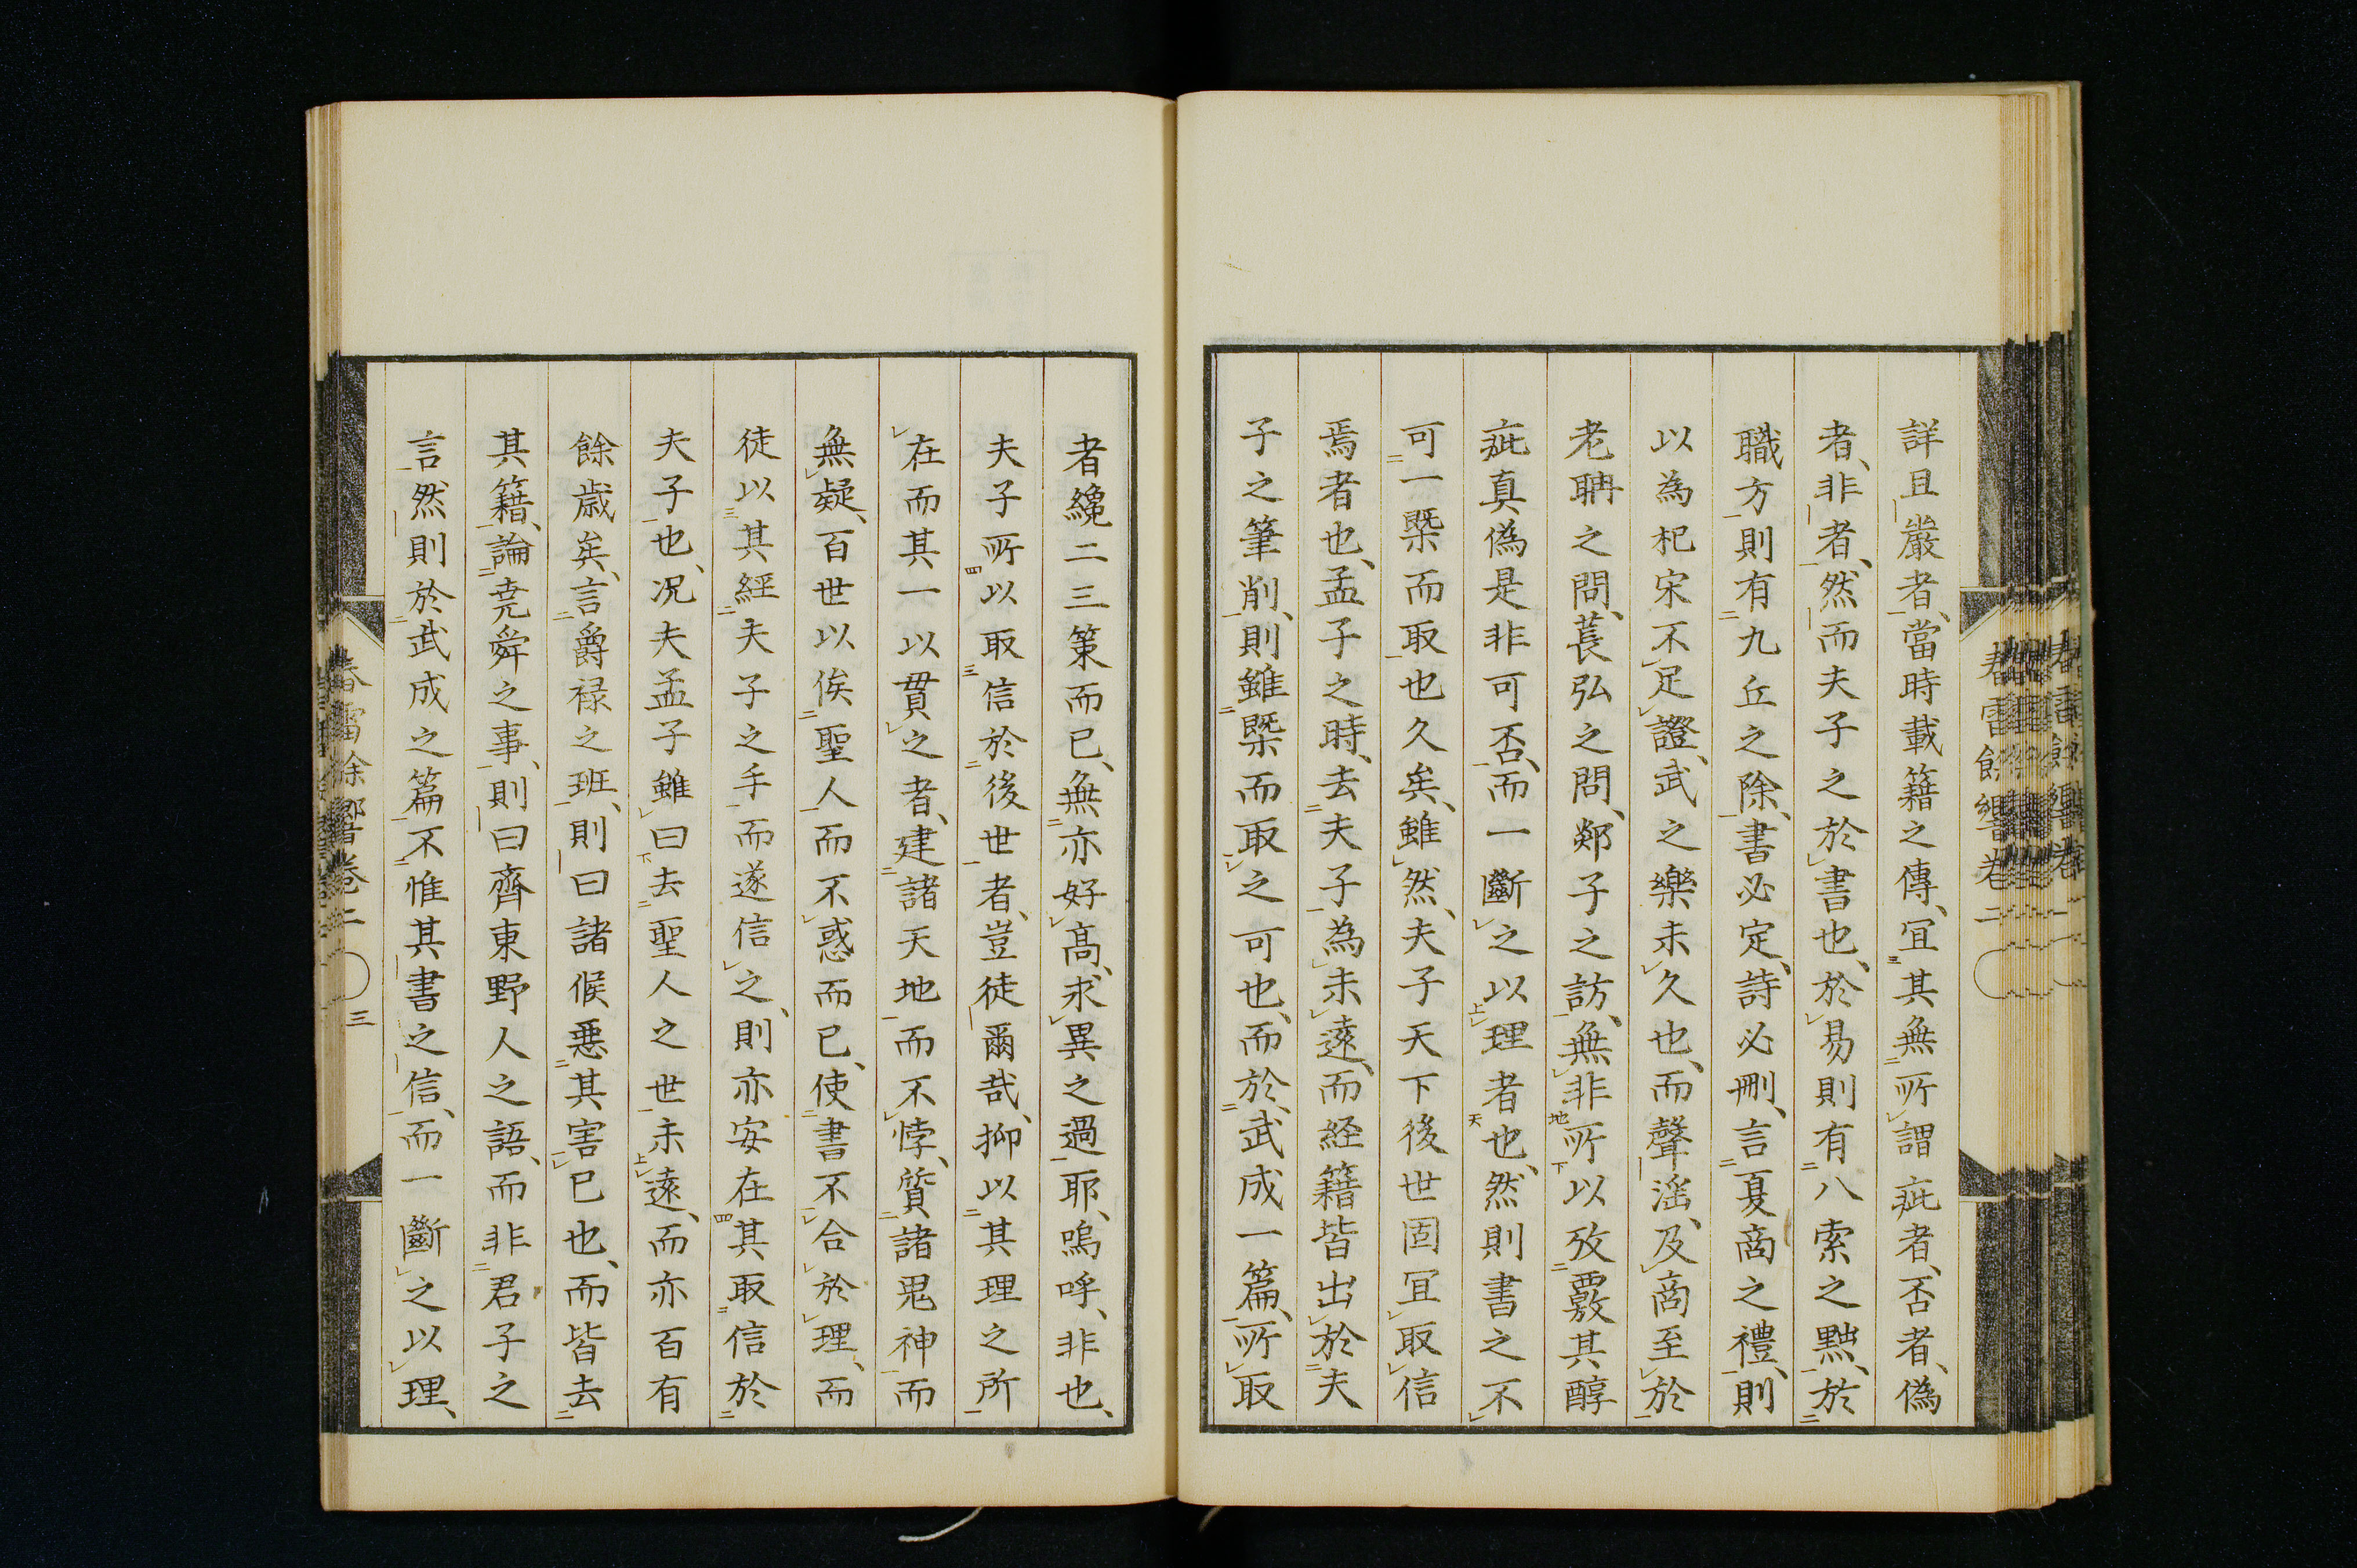 詳且嚴者、當時載籍之傳、冝其無所謂疵者、否者、偽
者、非者、然而夫子之於書也、於易則有八索之黜、於
職方則有九丘之除、書必定、詩必刪、言夏商之禮、則
以為杞宋不足證、武之樂未久也、而聲滛、及商至於
老聃之問、萇弘之問、郯子之訪、無非所以攷覈其醇
疵真偽是非可否、而一斷之以理者也、然則書之不
可一槩而取也久矣、雖然、夫子天下後世固冝取信
焉者也、孟子之時、去夫子為未遠、而経籍皆出於夫
子之筆削、則雖槩而取之可也、而於武成一篇、所取
者纔二三策而已、無亦好高、求異之過耶、嗚呼、非也、
夫子所以取信於後世者、豈徒爾哉、抑以其理之所
在而其一以貫之者、建諸天地而不悖、質諸鬼神而
無疑、百世以俟聖人而不惑而已、使書不合於理、而
徒以其經夫子之手而遂信之、則亦安在其取信於
夫子也、况夫孟子雖曰去聖人之世未遠、而亦百有
餘歲矣、言爵禄之班、則曰諸候惡其害已也、而皆去
其籍、論堯舜之事、則曰齊東野人之語、而非君子之
言然則於武成之篇不惟其書之信、而一斷之以理、
春雷餘響卷二
三